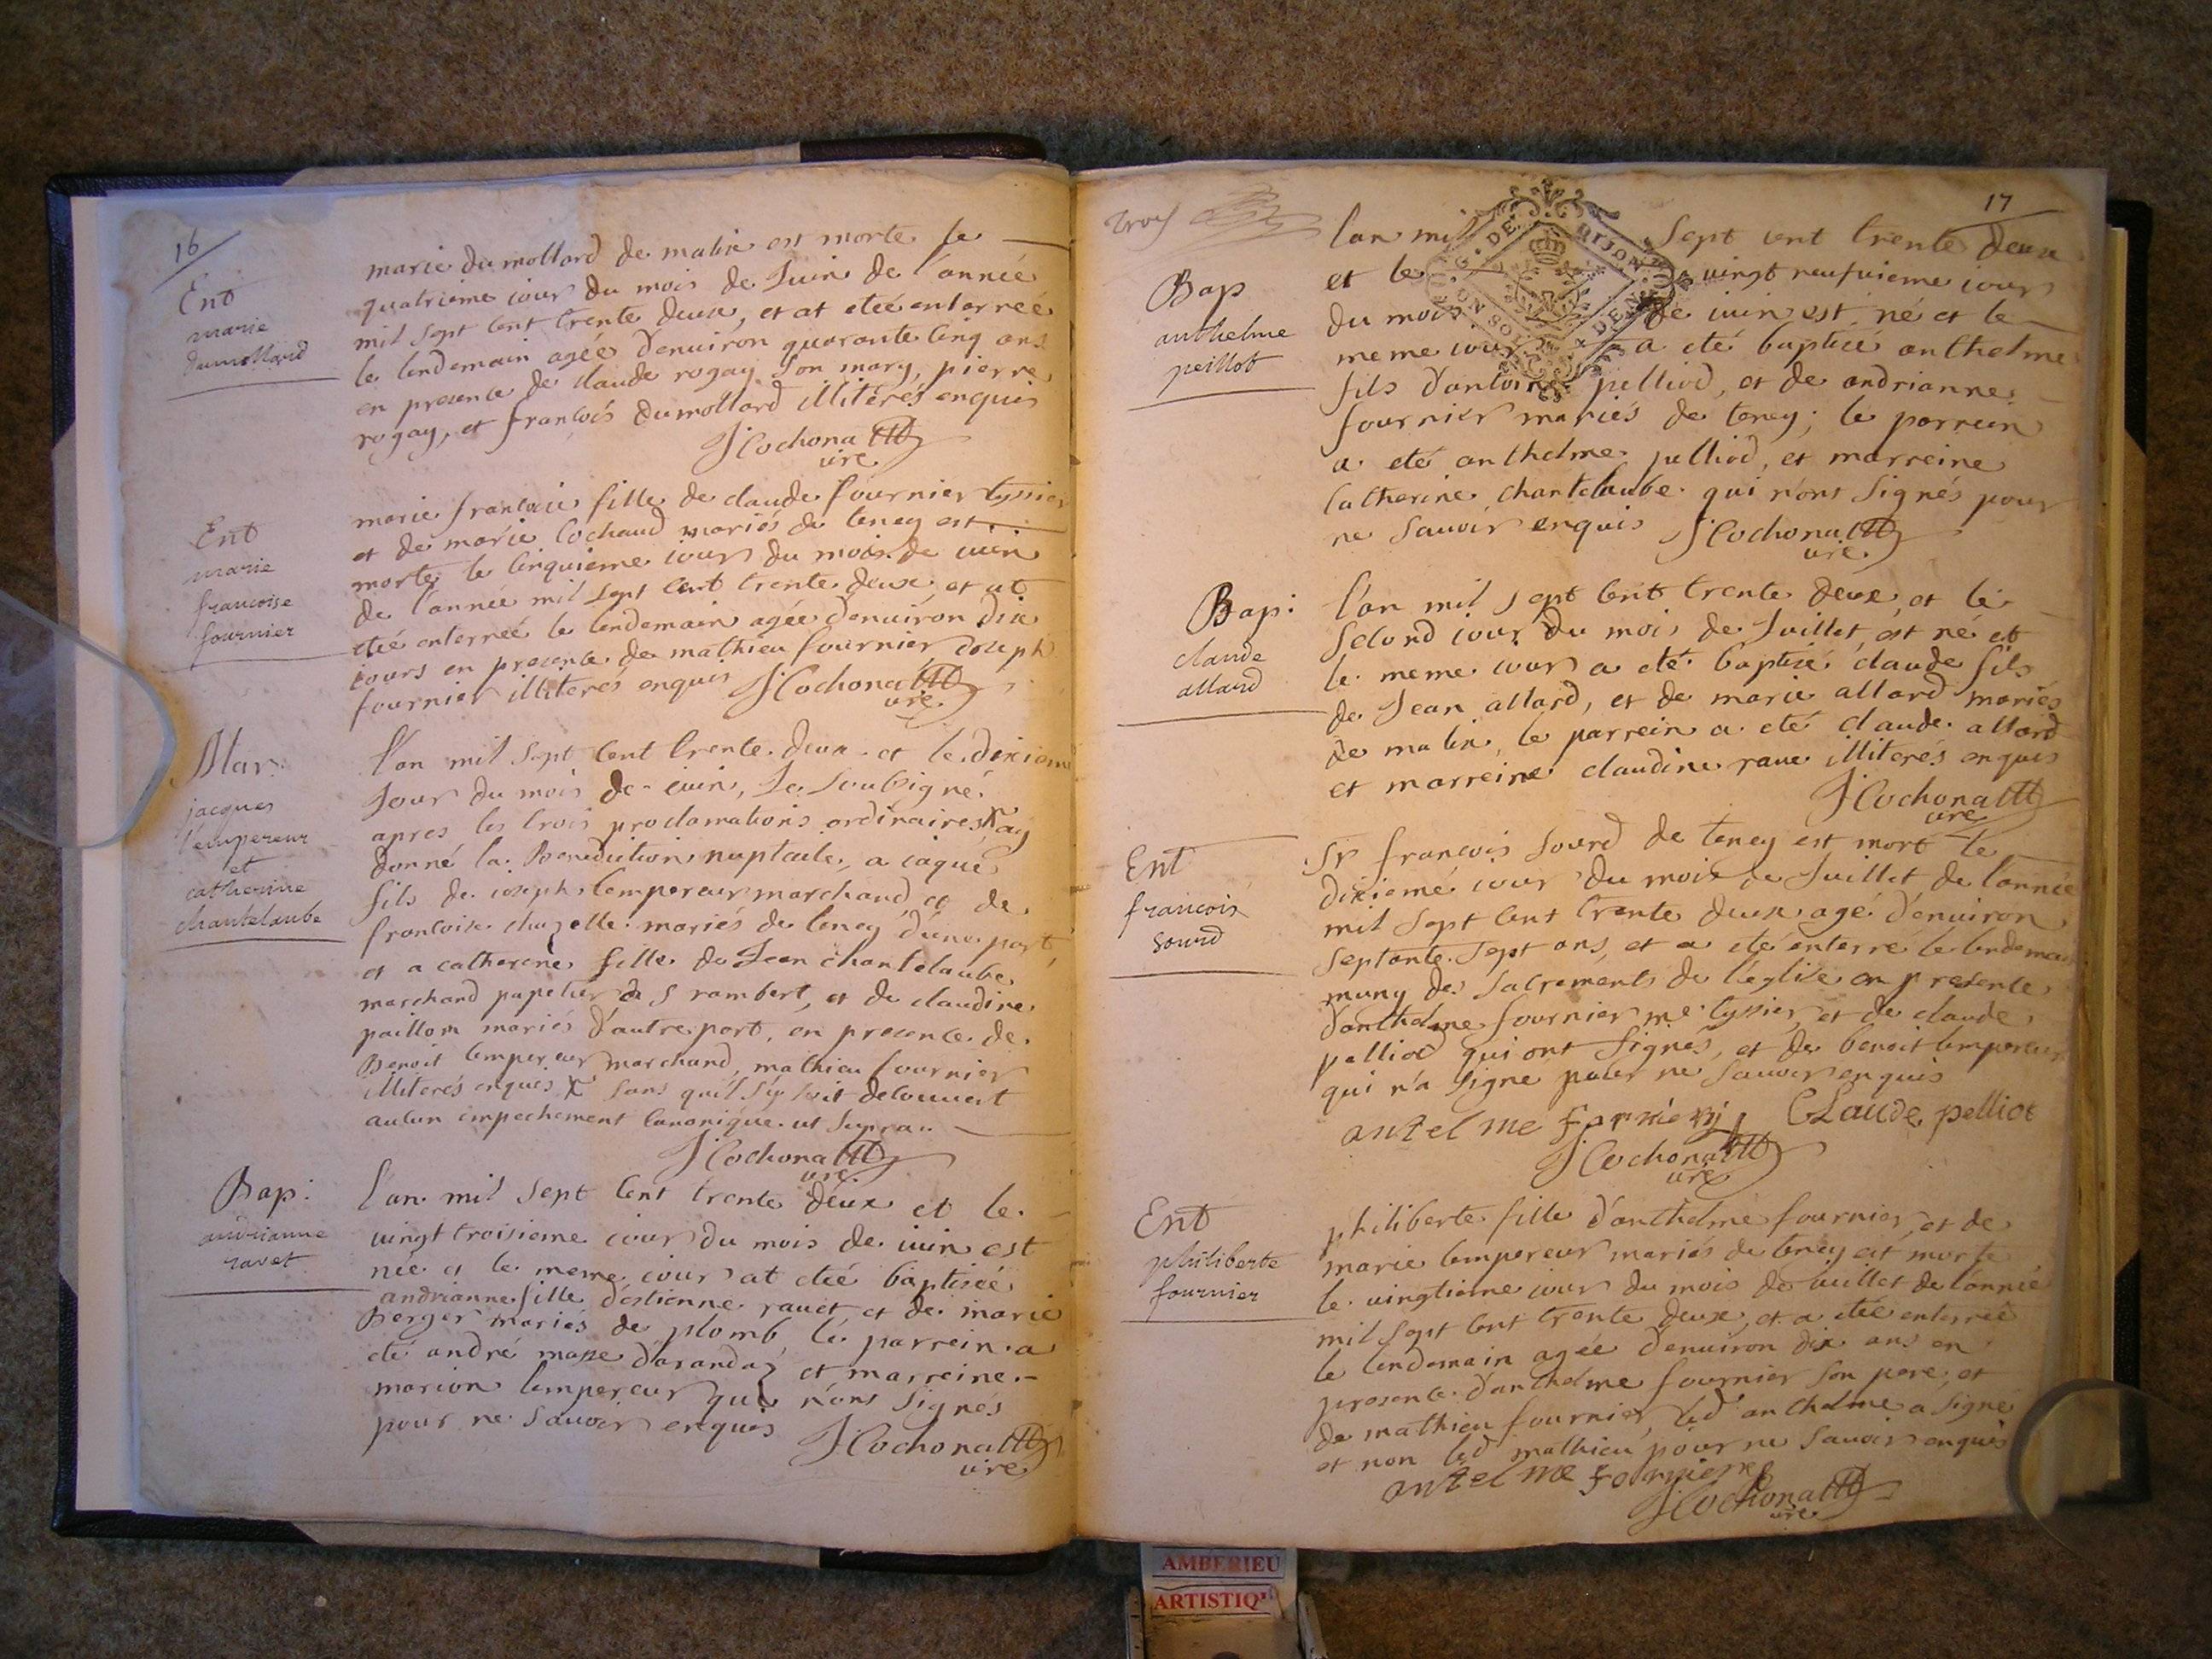 16
Ent
marie
dumollard
marie dumollard de matix est morte le
quatrieme iour du mois de Juin de l'année
mil sept cent trente deux, et at eteé enterreé
le lendemain ageé d'enuiron quarante cinq ans
en presence de claude rogay son mary, pierre
rogay, et françois dumollard illiterés enquis
J Cochonat
cure
Ent
marie
francoise
fournier
marie francoise fille de claude fournier tyssier
et de marie Cochaud mariés de teney est
morte le cinquieme iour du mois de iuin
de l'année mil sept cent trente deux, et at
eteé enterreé le lendemain ageé d'enuiron dix
iours en presence de mathieu fournier ioseph
fournier illiterés enquis J Cochonat
cure
Mar.
jacques
l'empereur
et
catherine
chantelaube
l'an mil sept cent trente deux et le dixieme
Jour du mois de iuin, Je soubsigné
apres les trois proclamations ordinaires ay
donné la Benediction nuptiale, a iaque
fils de ioseph lempereur marchand et de
francoise chuzelle mariés de teney d'une part,
et a catherine fille de Jean chantelaube
marchand papetier a S rambert, et de claudine
paillom mariés d'autre part, en presence de
Benoit lempereur marchand, mathieu fournier
illiterés enquis X sans quil s'y soit decouuert
aucun empechement canonique ut supra
J Cochonat
cure
Bap:
andrianne
ravet
l'an mil sept cent trente deux et le
uingt troisieme iour du mois de iuin est
neé et le meme iour at eteé baptiseé
andrianne fille d'estienne rauet et de marie
Berger mariés de plomb, le parrein a
eté andré masse d'arandaz et marreine
marion lempereur qui n'ont signés
pour ne sauoir enquis J Cochonat
cure
17
troy
Bap
anthelme
peillot
G. DE DIJON
lan mil sept cent trente deux
et le uingt neufuieme iour
du mois de iuin est né et le
meme iour a eté baptisé anthelme
fils d'antoine pelliod, et de andrianne
fournier mariés de teney; le parrein
a eté anthelme pelliod, et marreine
Catherine chantelaube qui n'ont signés pour
ne sauoir enquis J Cochonat
cure
Bap:
claude
allard
l'an mil sept cent trente deux, et le
second iour du mois de Juillet, est né et
le meme iour a eté baptisé claude fils
de Jean allard, et de marie allard mariés
de matix, le parrein a eté claude allard
et marreine claudine raue illiterés enquis
J Cochonat
cure
Ent
francois
sourd
Sr francois sourd de teney est mort le
dixieme iour du mois de Juillet de l'année
mil sept cent trente deux agé d'enuiron
septante sept ans, et a eté enterré le lendemain
muny des sacrements de l'eglise en presence
d'anthelme fournier me tyssier et de claude
pelliod qui ont signés, et de benoit lempereur
qui n'a signe pour ne sauoir enquis
antelme fornier Claude pelliot
J Cochonat
cure
Ent
philiberte
fournier
philiberte fille d'anthelme fournier, et de
marie lempereur mariés de teney est morte
le uingtieme iour du mois de iuillet de l'année
mil sept cent trente deux, et a eteé enterreé
le lendemain ageé d'enuiron dix ans en
presence d'anthelme fournier son pere, et
de mathieu fournier, led anthelme a signé
et non led mathieu pour ne sauoir enquis
antelme fornier
J Cochonat
cure
AMBERIEU
ARTISTIQ